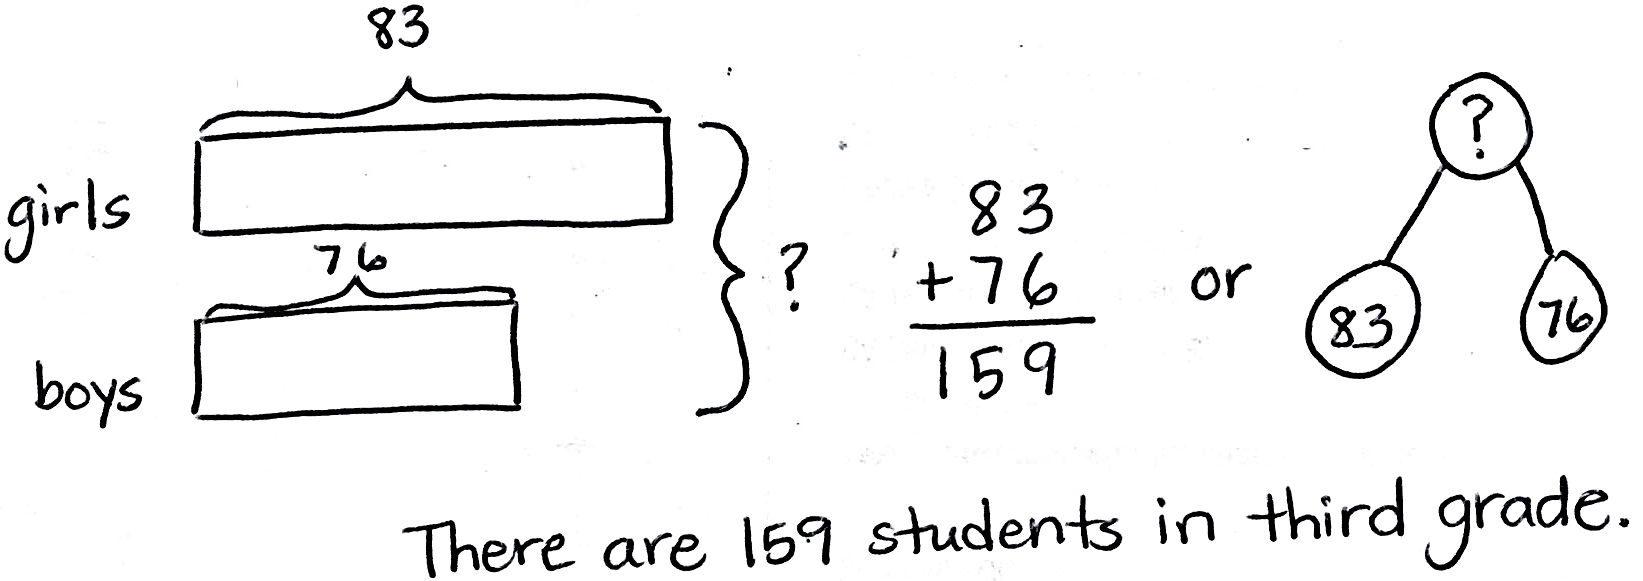 83
girls
76
boys
?
83
+76
159
or
?
83
76
There are 159 students in third grade.